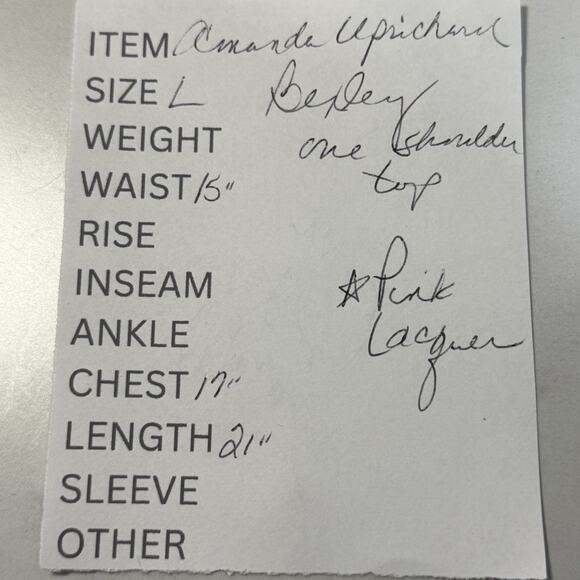 ITEM Amanda Uprichard
SIZE L Bexley
WEIGHT one shoulder
WAIST 15" top
RISE
INSEAM ☆ Pink
ANKLE Lacquer
CHEST 17"
LENGTH 21"
SLEEVE
OTHER